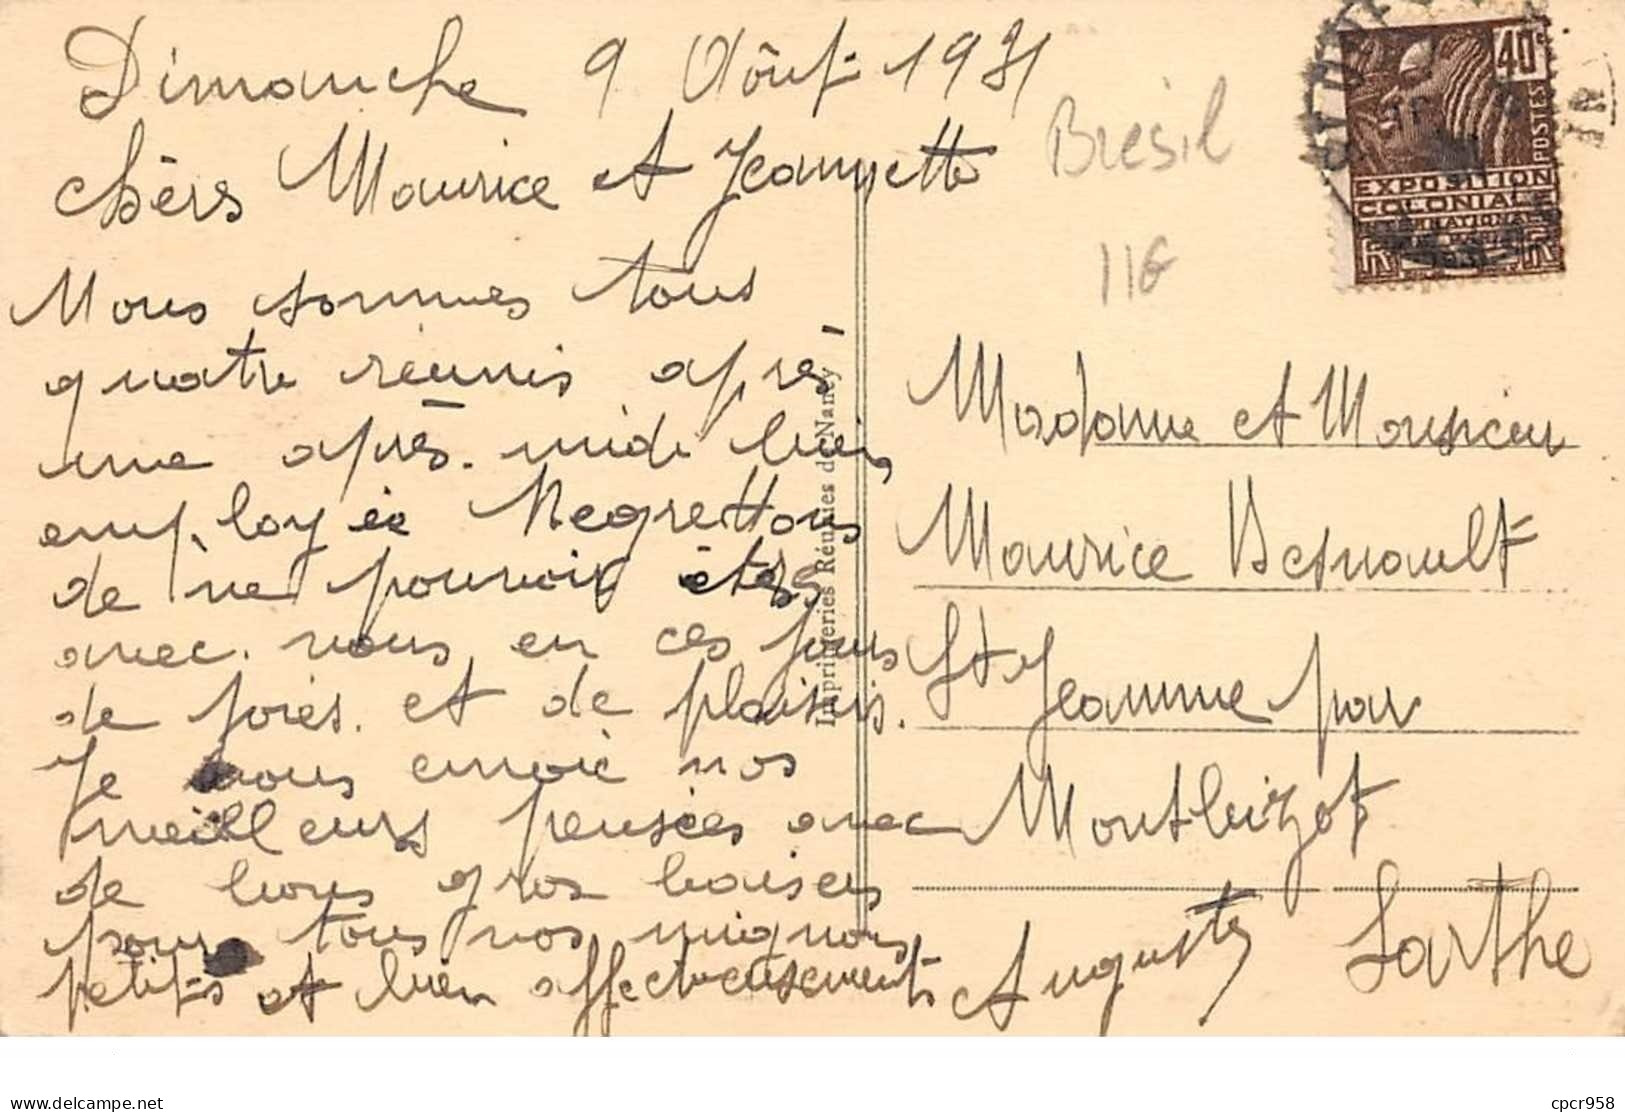 Dimanche 9 Aôut 1931
chèrs Maurice et Jeannette
Nous sommes tous
quatre réunis après
une après-midi bien
employée Regrettons
de ne pouvoir êtes
avec vous en ces jours
de joies et de plaisirs.
Je vous envoie nos
meilleurs pensées avec
de bons gros baisers
pour tous vos mignons
petits et bien affectueusement
Auguste
Imprimeries Réunies de Nancy
Brésil
11€
40c
POSTES
EXPOSITION
COLONIALE
INTERNATIONALE
Madame et Monsieur
Maurice Besnault
St Jeanne par
Montbizot
Sarthe
delcampe.net
cpcr958